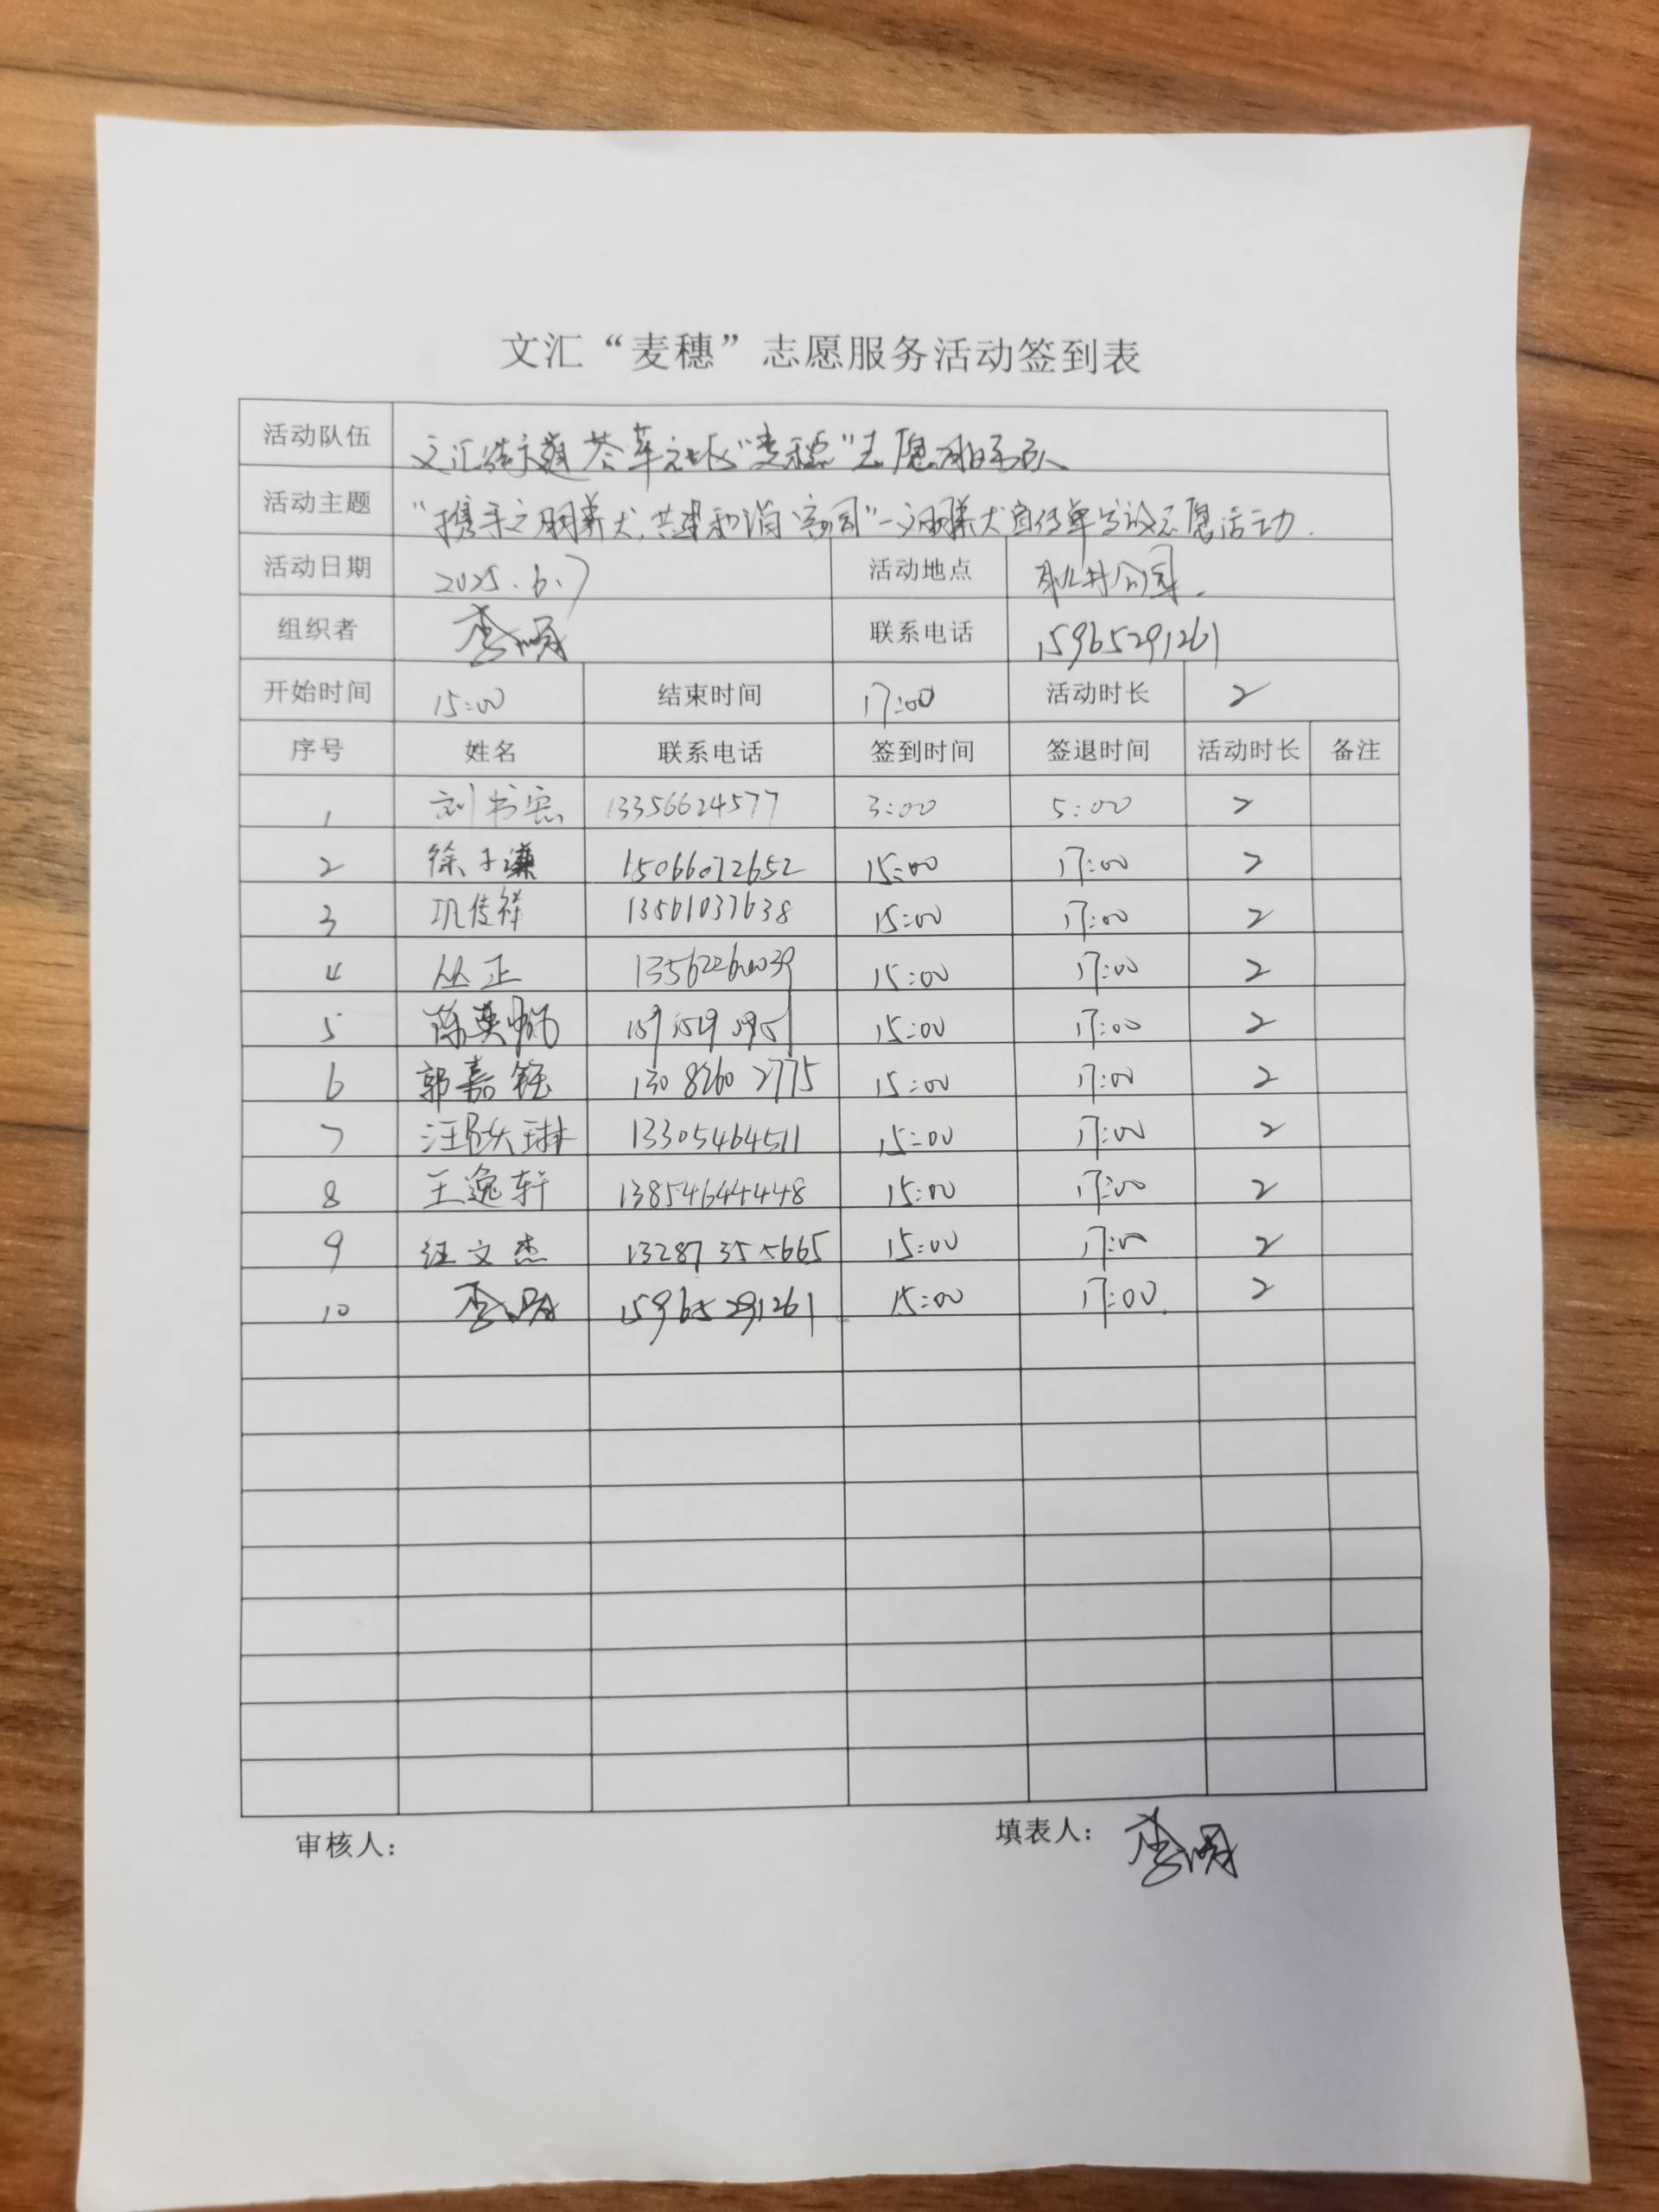 文汇“麦穗”志愿服务活动签到表
活动队伍 文汇街道 荟萃社区“麦穗”志愿服务队
活动主题 “携手文明养犬,共建和谐家园”—文明养犬宣传单发放志愿活动.
活动日期 2025.6.7 活动地点 公园.
组织者 李明 联系电话 15965291261
开始时间 15:00 结束时间 17:00 活动时长 2
序号 姓名 联系电话 签到时间 签退时间 活动时长 备注
1 刘书宏 13356624577 3:00 5:00 2
2 徐子谦 15066072652 15:00 17:00 2
3 巩传祥 13561037638 15:00 17:00 2
4 丛正 15:00 17:00 2
5 15:00 17:00 2
6 郭嘉钰 130 8260 2775 15:00 17:00 2
7 汪玖琳 13305464511 15:00 17:00 2
8 王逸轩 13854644448 15:00 17:00 2
9 汪文杰 13287355665 15:00 17:00 2
10 李明 15965291261 15:00 17:00. 2
审核人: 填表人: 李明